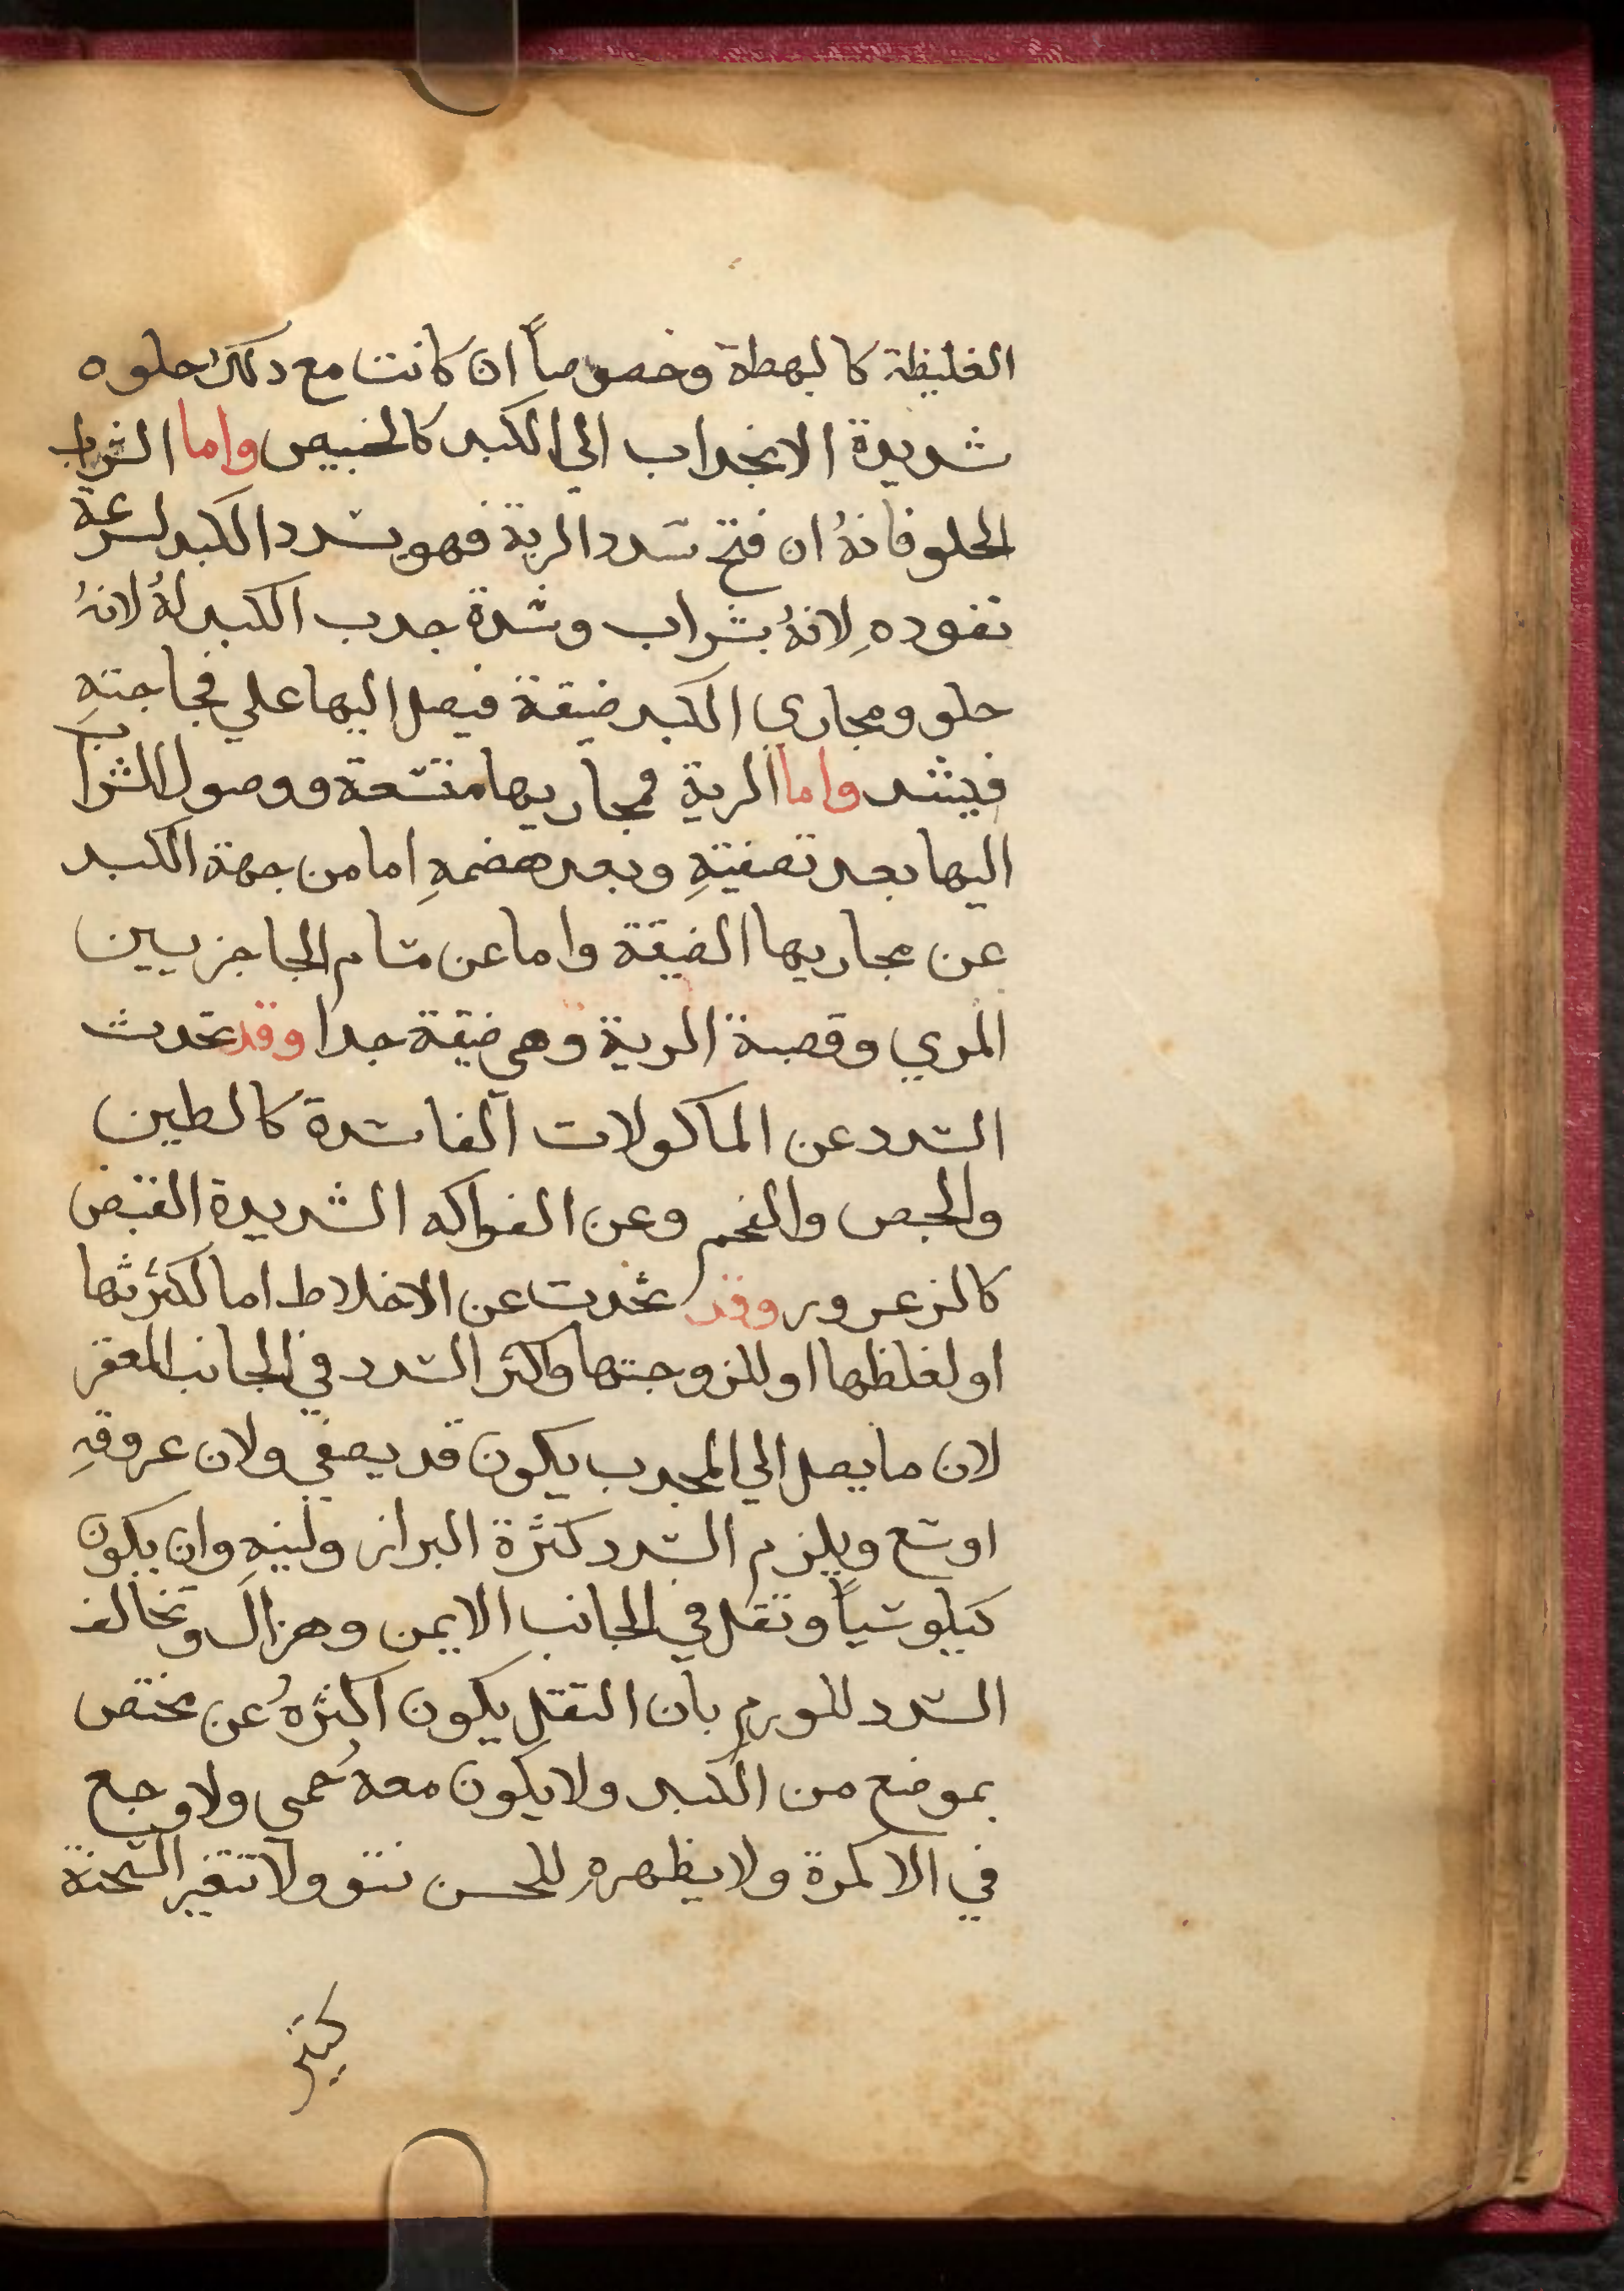 الغليظة كالبهطة وخصوصاً ان كانت مع دلك حلوه
شديدة الانجداب الي الكبد كالخبيص واما الشراب
الحلو فانهُ ان فتح سدد الرية فهو يسدد الكبد لسرعة
نفودهِ لانهُ بشراب وشدة جدب الكبد لهُ لانهُ
حلو ومجاري الكبد ضيقة فيصل اليها علي فجاجتهِ
فينسد واما الرية فمجاريها متسعة ووصول الشراب
اليها بعد تصفيتهِ وبعد هضمهِ اما من جهة الكبد
عن مجاريها الضيقة واما عن مسام الحاجز بين
المري وقصبة الرية وهي ضيقة جدا وقد تحدث
السدد عن الماكولات الفاسدة كالطين
والجص والفحم وعن الفواكه الشديدة القبض
كالزعرور وقد تحدت عن الاخلاط اما لكثرتها
او لغلظها او للزوجتها واكثر السدد في الجانب المعقر
لان ما يصل الي المحدب يكون قد يصفي ولان عروقهِ
اوسع ويلزم السدد كثرة البراز ولينهِ وان يكون
كيلوسياً وتقل في الجانب الايمن وهزال وتخالف
السدد للورم بان التقل يكون اكثرهُ عن مختص
بموضع من الكبد ولا يكون معهُ حمى ولا وجع
في الاكمرة ولا يظهره للحسن نتو ولا تتغير السحنة
كثير